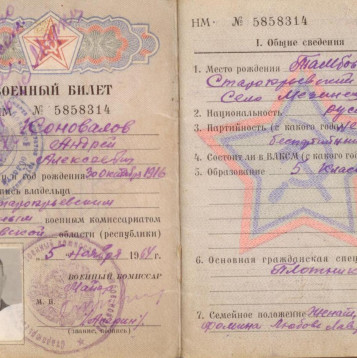 ВОЕННЫЙ БИЛЕТ
НМ- № 5858314
Коновалов
Андрей
Алексеевич
и год рождения 30 октября 1916
пись владельца
военным комиссариатом
вской области (республики)
5 ноября 1964
ВОЕННЫЙ КОМИССАР
Майор
М. П.
(звание, подпись)
НМ- № 5858314
I. Общие сведения
1. Место рождения Тамбов
Староюрьевский
Село
2. Национальность русс
3. Партийность (с какого года)
беспартийн
4. Состоял ли в ВЛКСМ (с какого го
5. Образование 5 класс
6. Основная гражданская спец
Плотник
7. Семейное положение женат
Фомина Любовь